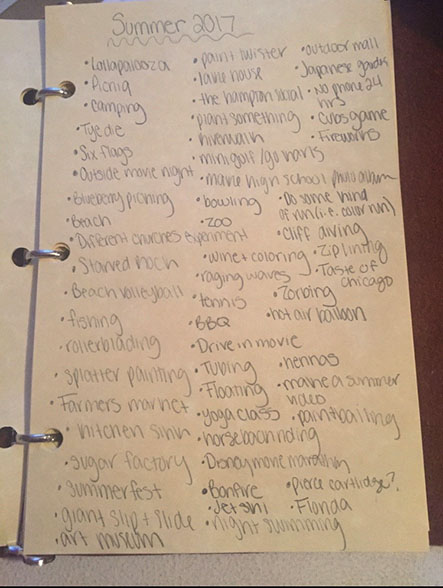 Summer 2017
• Lollapalooza
• Picnic
• camping
• Tye die
• Six flags
• Outside movie night
• Blueberry picking
• Beach
• Different churches experiment
• Starved rock
• Beach volleyball
• fishing
• rollerblading
• splatter painting
• Farmers market
• kitchen sink
• sugar factory
• summerfest
• giant slip + slide
• art museum
• paint twister
• lake house
• the hampton social
• plant something
• riverwalk
• minigolf/go karts
• make high school photo album
• bowling
• zoo
• wine + coloring
• raging waves
• tennis
• BBQ
• Drive in movie
• Tubing
• Floating
• yoga class
• horseback riding
• Disney movie marathon
• Bonfire
• Jet ski
• night swimming
• outdoor mall
• Japanese garden
• No phone 24
hrs
• Cubs game
• Fireworks
• Do some kind
of run (i.e. color run)
• cliff diving
• Ziplining
• Taste of
chicago
• Zorbing
• hot air balloon
• hennas
• make a summer
video
• paintballing
• Pierce cartlidge?
• Florida